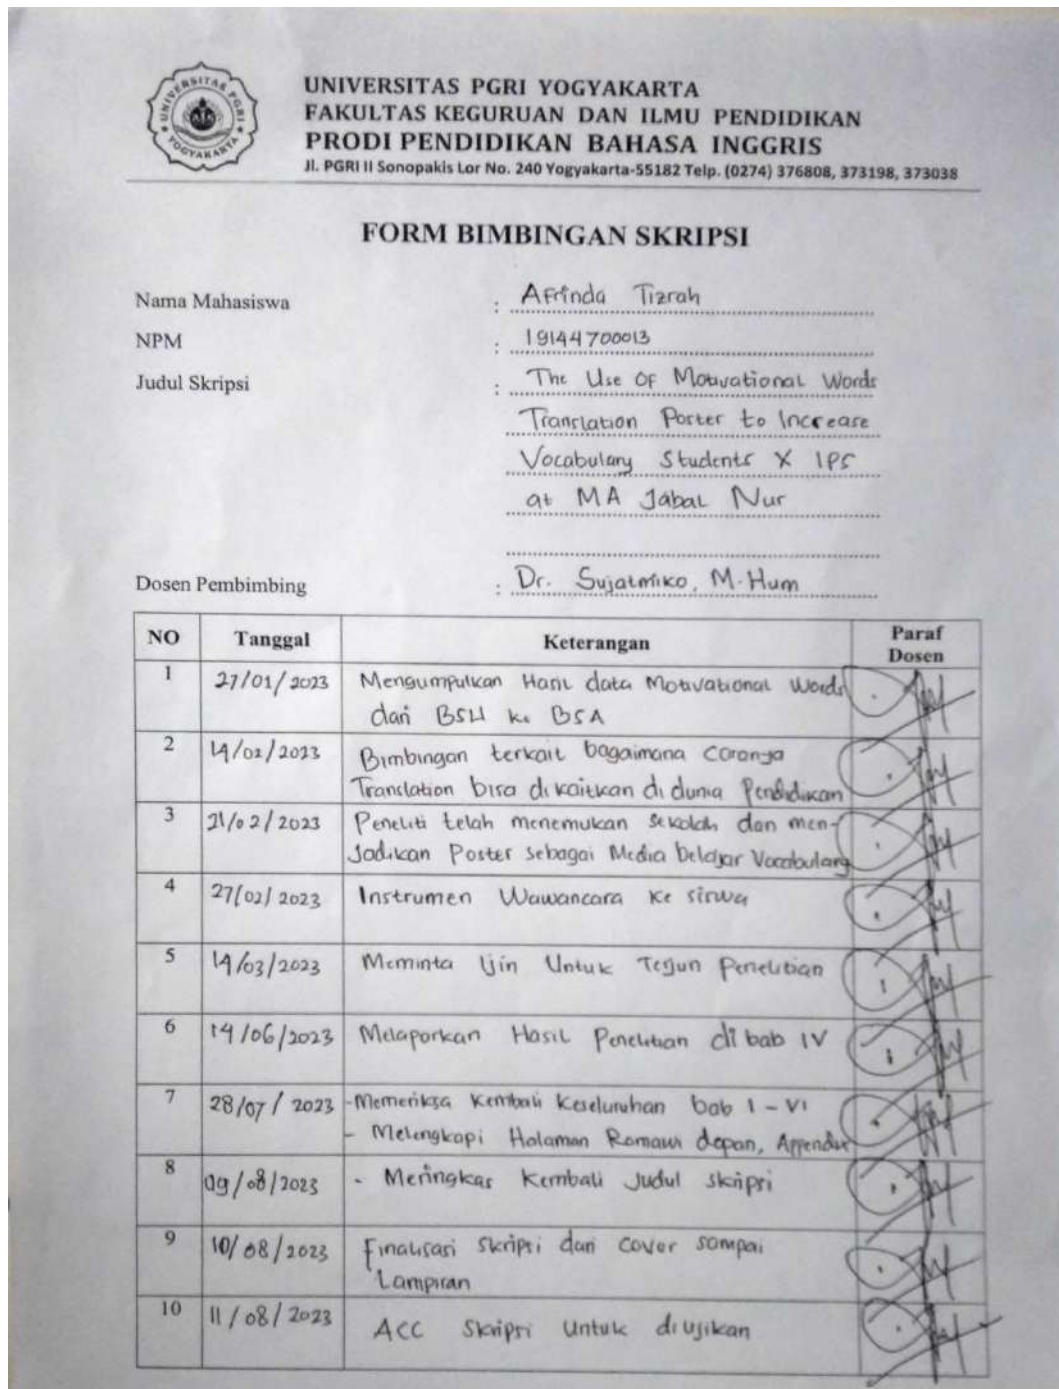 UNIVERSITAS PGRI YOGYAKARTA
UNIVERSITAS PGRI YOGYAKARTA
FAKULTAS KEGURUAN DAN ILMU PENDIDIKAN
PRODI PENDIDIKAN BAHASA INGGRIS
Jl. PGRI II Sonopakis Lor No. 240 Yogyakarta-55182 Telp. (0274) 376808, 373198, 373038
FORM BIMBINGAN SKRIPSI
Nama Mahasiswa : Afrinda Tizrah
NPM : 19144700013
Judul Skripsi : The Use Of Motivational Words
Translation Poster to Increase
Vocabulary Students X IPS
at MA Jabal Nur
Dosen Pembimbing : Dr. Sujatmiko, M.Hum
NO Tanggal Keterangan Paraf Dosen
1 27/01/2023 Mengumpulkan Hasil data Motivational Words
dari BSU ke BSA
2 14/02/2023 Bimbingan terkait bagaimana caranya
Translation bisa di kaitkan di dunia Pendidikan
3 21/02/2023 Peneliti telah menemukan sekolah dan men-
Jadikan Poster sebagai Media belajar Vocabulary
4 27/02/2023 Instrumen Wawancara Ke siswa
5 14/03/2023 Meminta Ijin Untuk Terjun Penelitian
6 14/06/2023 Melaporkan Hasil Penelitian di bab IV
7 28/07/2023 -Memeriksa Kembali Keseluruhan bab I - VI
- Melengkapi Halaman Romawi depan, Appendix
8 09/08/2023 - Meringkas Kembali Judul skripsi
9 10/08/2023 Finalisasi skripsi dari cover sampai
Lampiran
10 11/08/2023 ACC Skripsi Untuk diujikan